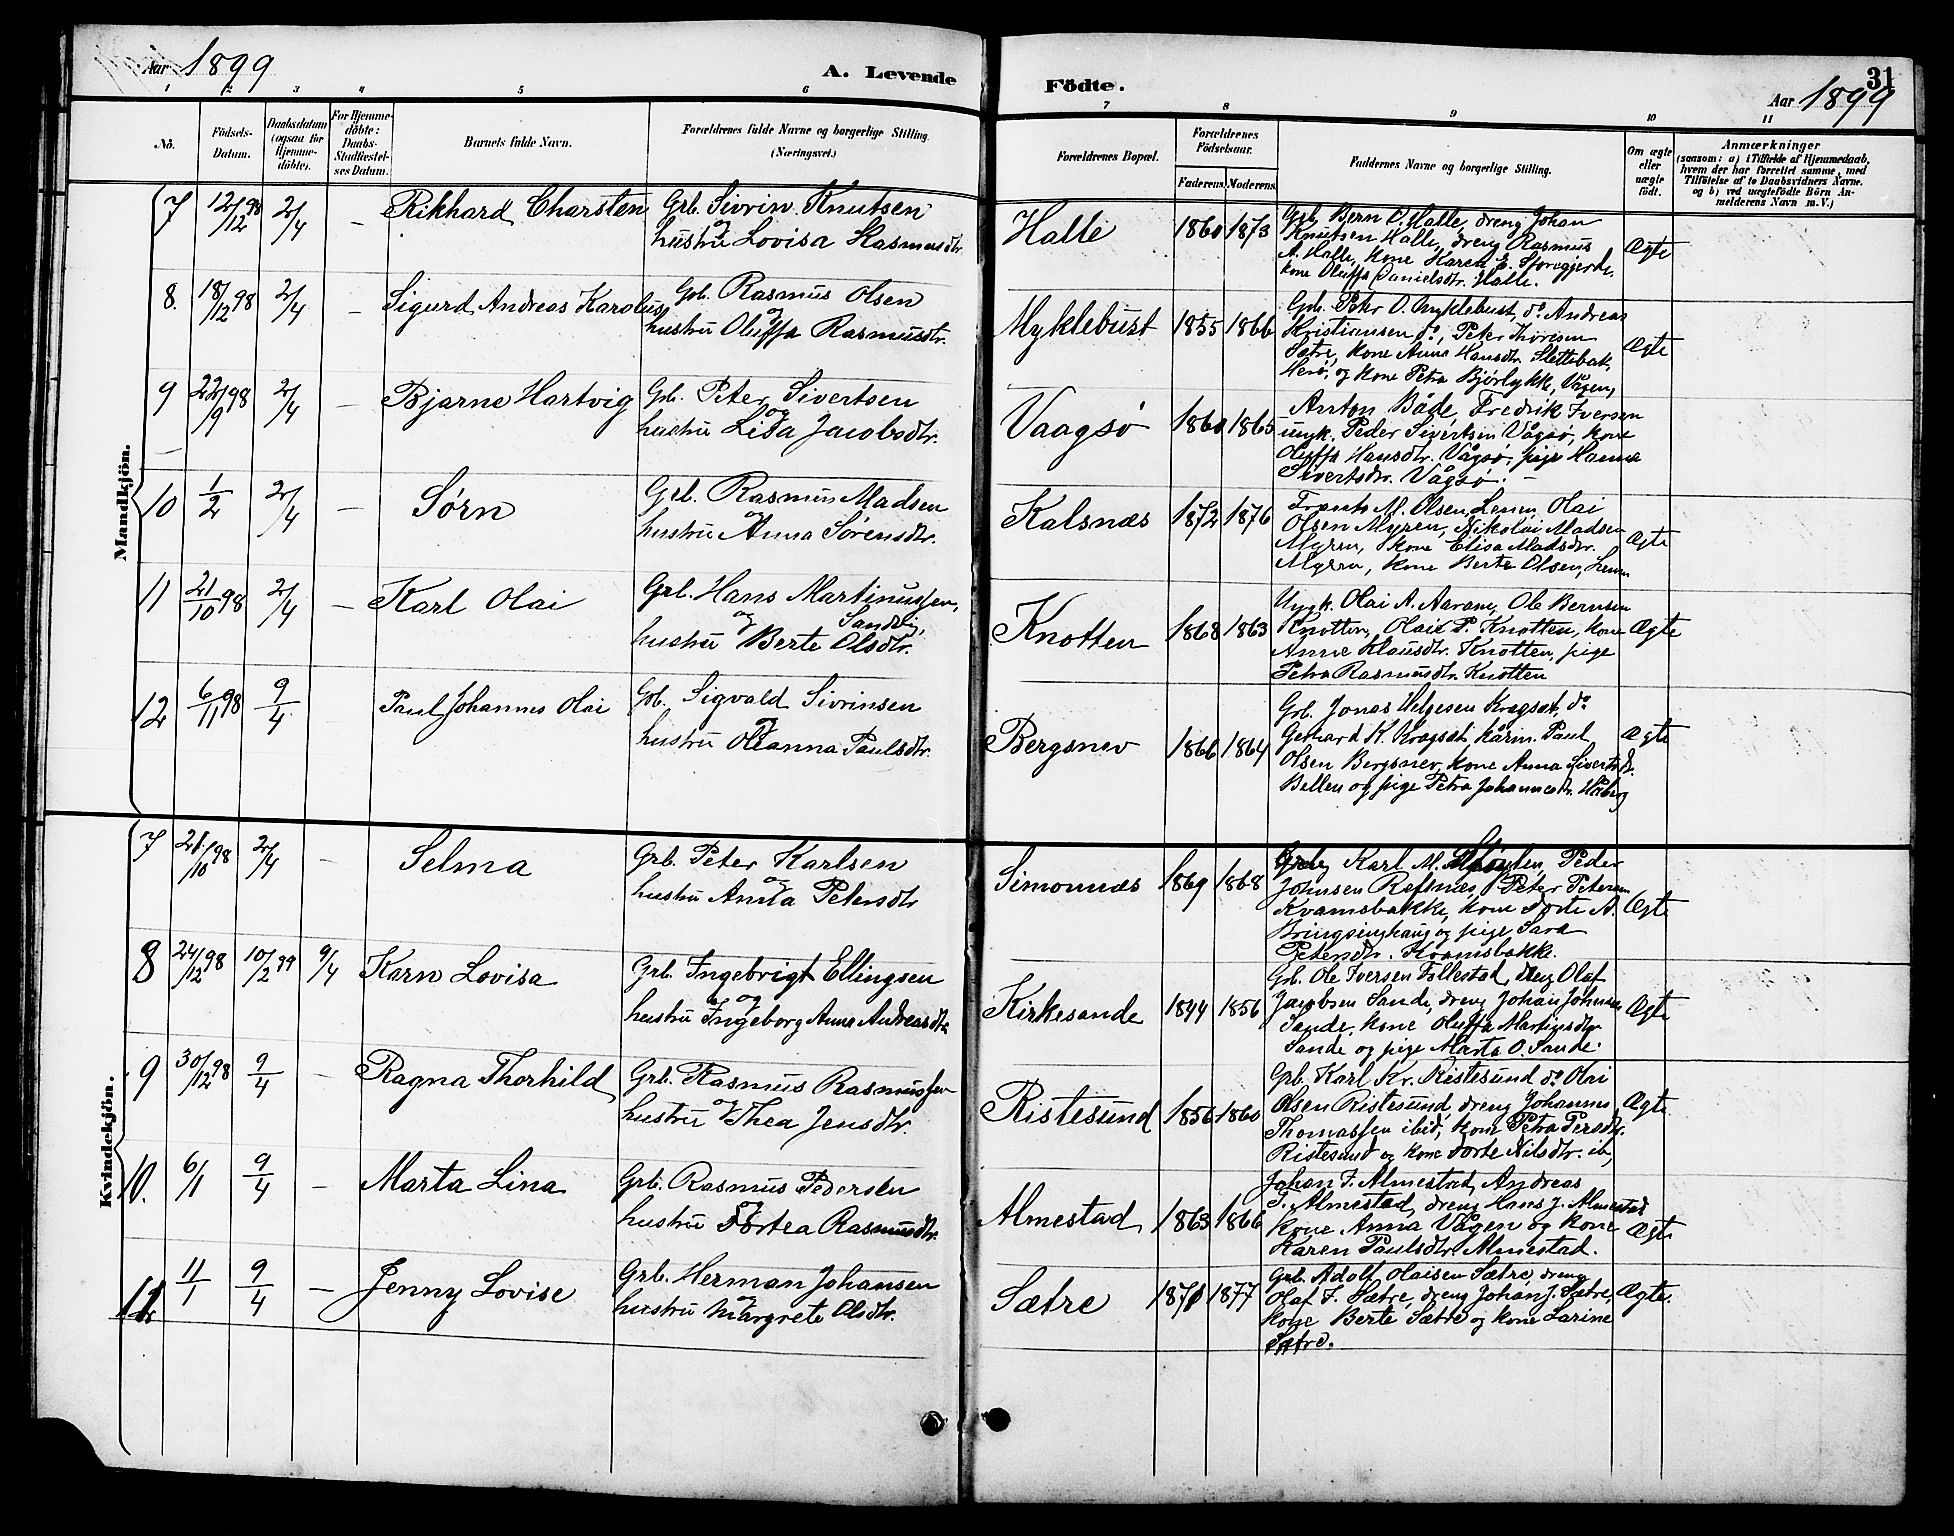 Aar 1899
A. Levende
Födte.
31
Aar 1899
1 2 3 4 5 6 7 8 9 10 11
No.
Födsels-Datum.
Daabsdatum (ogsaa for Hjemmedöbte).
For Hjemmedöbte: Daabs-Stadfæstelses Datum.
Barnets fulde Navn.
Forældrenes fulde Navne og borgerlige Stilling. (Næringsvei.)
Forældrenes Bopæl.
Forældrenes Födselsaar.
Faderens. Moderens.
Faddernes Navne og borgerlige Stilling.
Om ægte eller uægte födt.
Anmærkninger
(saasom: a) i Tilfælde af Hjemmedaab, hvem der har forrettet samme, med Tilföielse af to Daabsvidners Navne, og b) ved uægtefödte Börn Anmelderens Navn m. V.)
Mandkjön.
7 12/12 98 2/4 — Rikhard Charsten
Grb. Sivrin Knutsen
og
hustru Lovisa Rasmusdtr.
Halle 1860 1873
Grb. Bern O. Halle, dreng Johan
Knutsen Halle, dreng Rasmus
A. Halle, kone Karen E. Sporegjerde,
kone Oluffa Danielsdtr. Halle.
Ægte
8. 18/12 98 2/4 — Sigurd Andreas Karolius
Grb. Rasmus Olsen
og
hustru Oluffa Rasmusdtr.
Myklebust 1855 1866
Grb. Peter O. Myklebust, do Andreas
Kristiansen do, Peter Thoresen
Sætre, kone Anna Hansdtr. Slettebak,
Herø, og kone Petra Bjørlykke, Vågen,
Ægte
9 22/9 98 2/4 — Bjarne Hartvig
Grb. Peter Sivertsen
og
hustru Lisa Jacobsdtr.
Vaagsø 1860 1865
Anton Både, Fredrik Iversen
ungk. Peder Sivertsen Vågsø, kone
Oluffa Hansdtr. Vågsø, pige Hanna
Sivertsdtr. Vågsø. —
10 1/2 2/4 — Sørn
Grb. Rasmus Madsen
og
hustru Anna Sørensdtr.
Kalsnæs 1872 1876
Frants M. Olsen, Lenin, Olai
Olsen Myren, Nikolai Madsen
Myren, kone Elisa Madsdtr.
Myren, kone Berte Olsen, Lenin
Ægte
11 21/10 98 2/4 — Karl Olai
Grb. Hans Martinussen,
og Sandvig,
hustru Berte Olsdtr.
Knotten 1868 1863
Ungk. Olai A. Aaram, Ole Berntsen
Knotten, Olai P. Knotten, kone
Anne Klausdtr. Knotten, pige
Petra Rasmusdtr. Knotten
Ægte
12 6/11 98 9/4 Paul Johannes Olai
Grb. Sigvald Sivrinsen
og
hustru Oleanna Paulsdtr.
Bergsnev 1866 1864
Grb. Jonas Helgesen Kragset, do
Gerhard K. Kragset, kårm. Paul
Olsen Bergsnev, kone Anna Sivertsdtr.
Bellen og pige Petra Johannesdtr. Håberg
Ægte
Kvindekjön.
7 21/10 98 2/4 — Selma
Grb. Peter Karlsen
og
hustru Anna Petersdtr
Simonnæs 1869 1868
Karl M. Peder
Johnsen Refsnæs, Peter Petersen
Kvamsbakke, kone Dorte A.
Bringsvorhaug og pige Sara
Petersdtr. Kvamsbakke.
Ægte
8 24/12 98 10/2 99 9/4 Karn Lovisa
Grb. Ingebrigt Ellingsen
og
hustru Ingeborg Anna Andreasdtr
Kirkesande 1844 1856
Grb. Ole Iversen Follestad, dreng Olaf
Jacobsen Sande, dreng Johan Johnsen
Sande, kone Oluffa Martinsdtr
Sande og pige Marta O. Sande.
Ægte
9 30/12 98 9/4 — Ragna Thorhild
Grb. Rasmus Rasmussen
og
hustru Thea Jensdtr.
Ristesund 1856 1860
Grb. Karl Kr. Ristesund do Olai
Olsen Ristesund, dreng Johannes
Thomassen ibid, kone Petra Persdtr.
Ristesund og kone Dorte Nilsdtr. ib,
Ægte
10. 6/1 9/4 — Marta Lina
Grb. Rasmus Pedersen
og
hustru Dortea Rasmusdtr.
Almestad 1863 1866
Johan J. Almestad, Andreas
T. Almestad, dreng Hans J. Almestad
kone Anna Vågen og kone
Karen Paulsdtr. Almestad.
Ægte
11. 11/1 9/4 — Jenny Lovise
Grb. Herman Johansen
og
hustru Margrete Olsdtr.
Sætre 1871 1877
Grb. Adolf Olaisen Sætre, dreng
Olaf J. Sætre, dreng Johan J. Sætre,
kone Berte Sætre og kone Larine
Sætre.
Ægte.